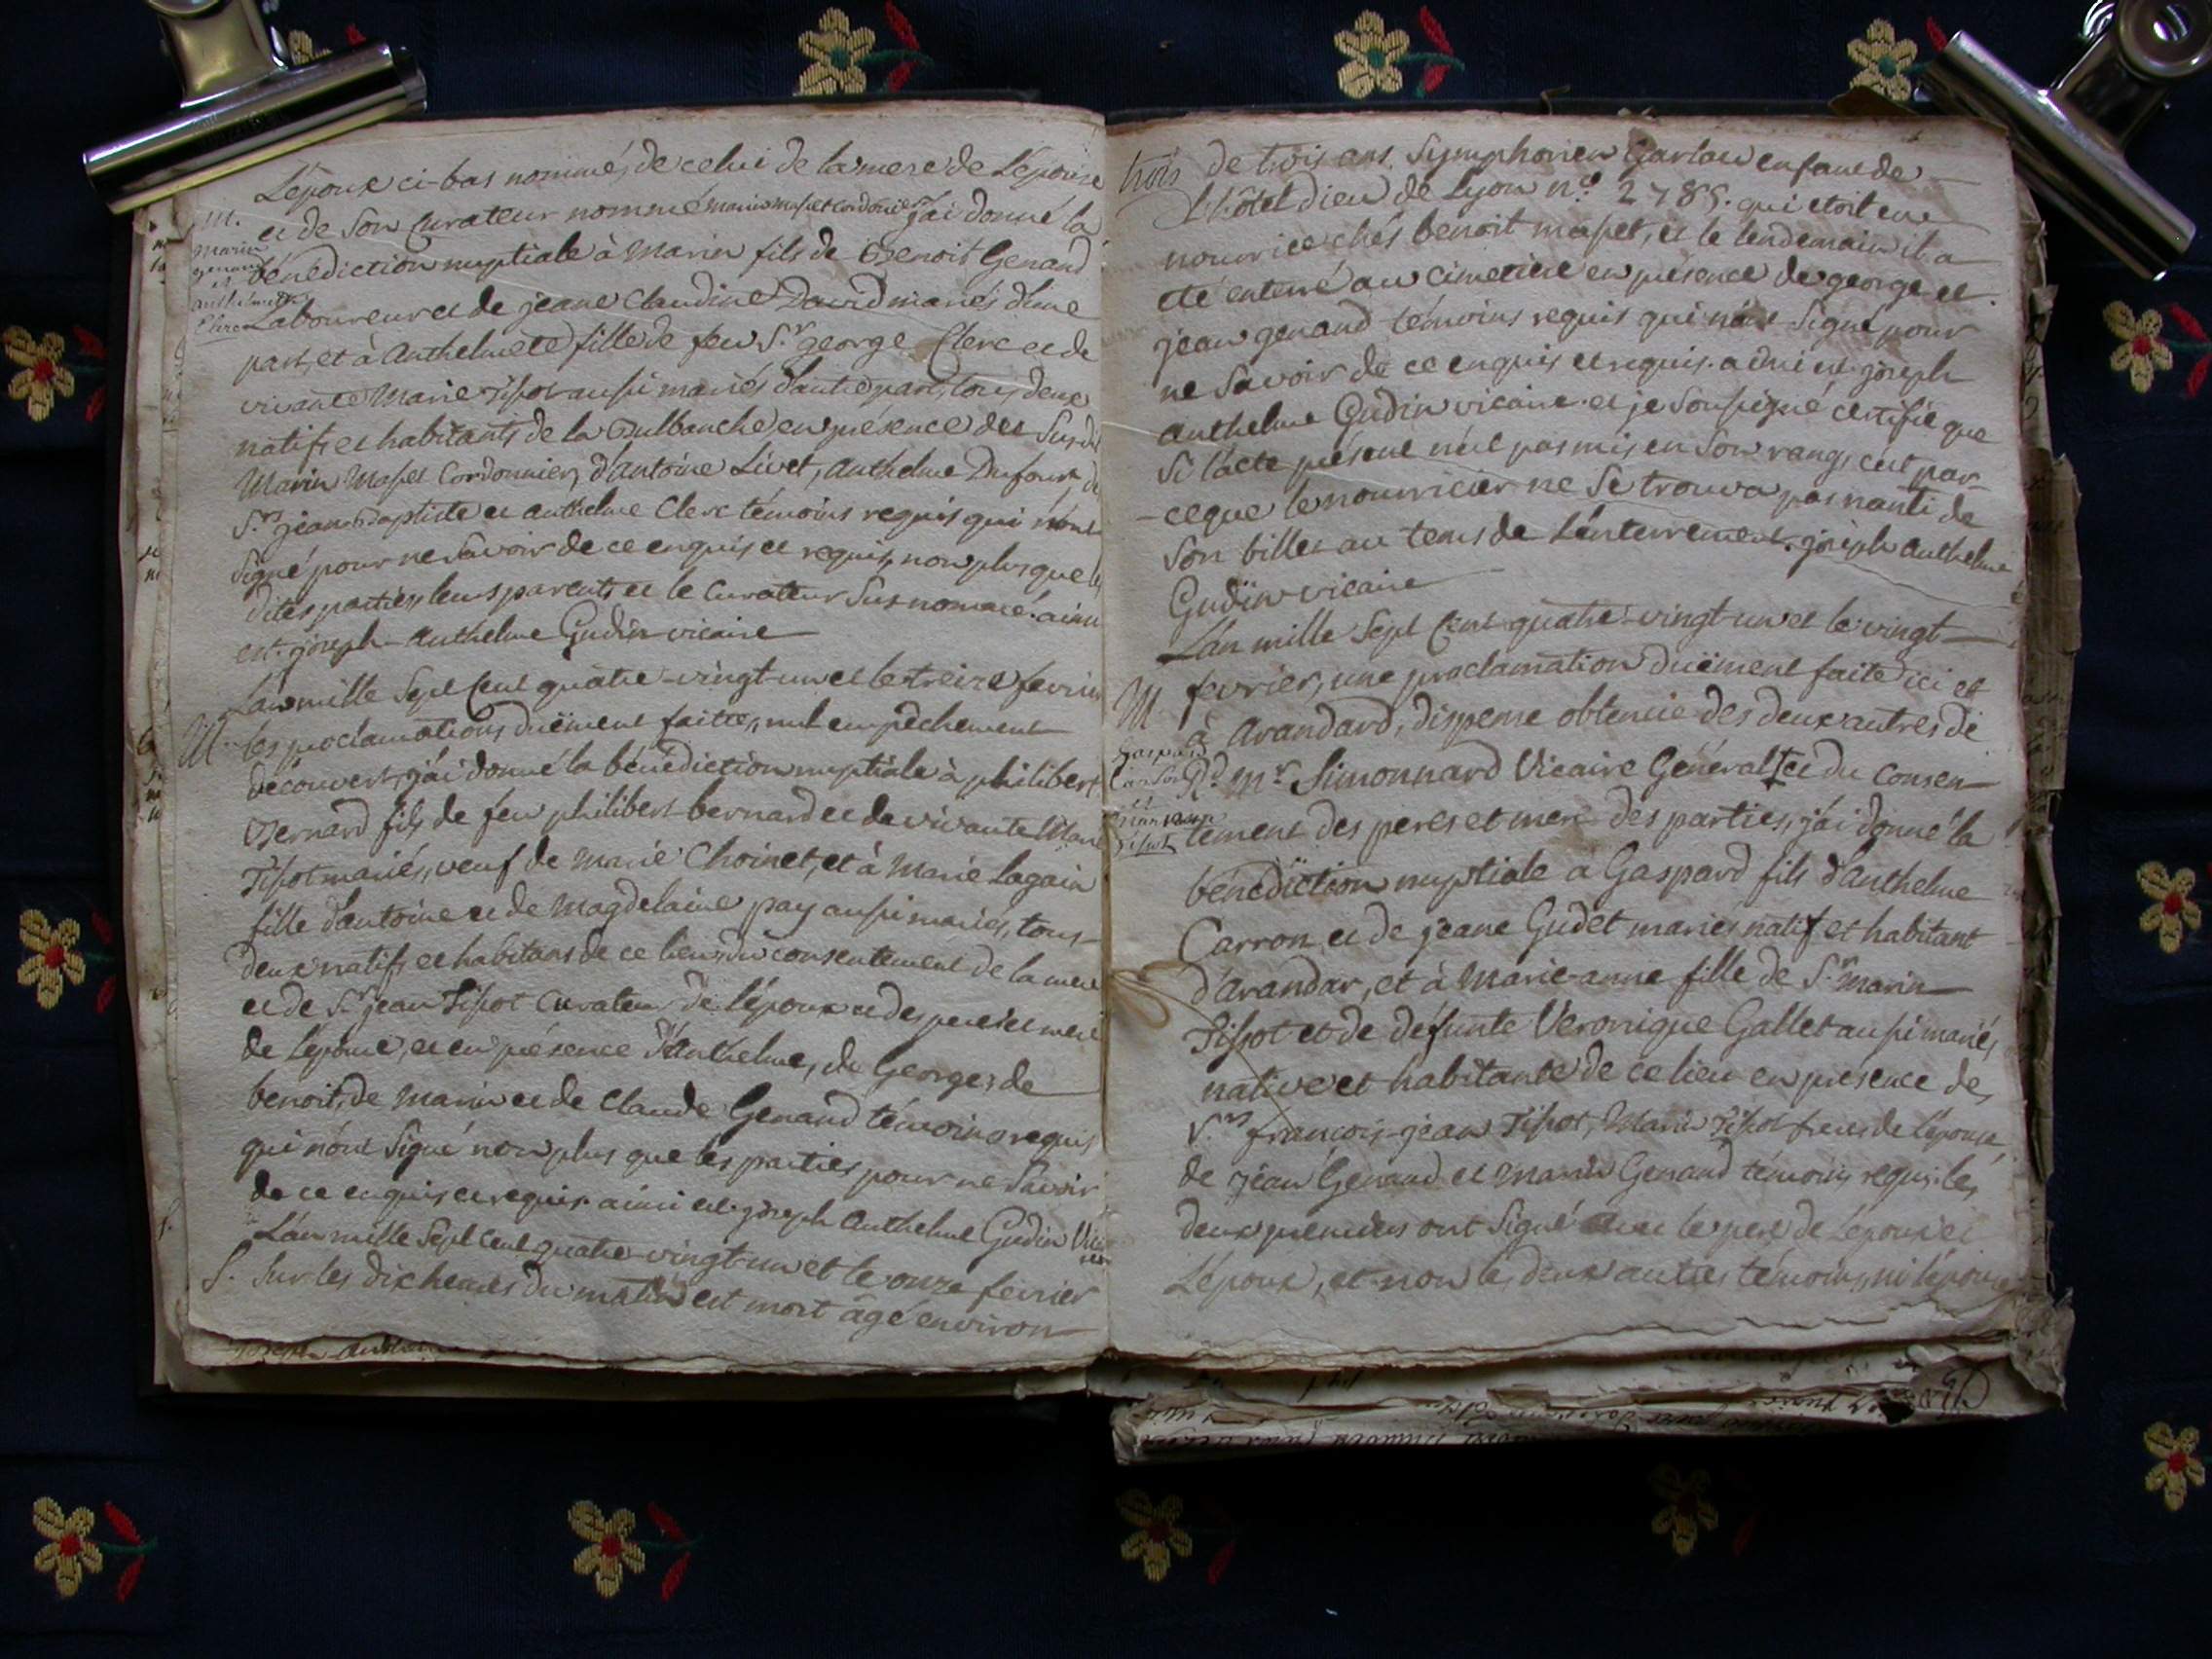 L'epoux ci-bas nommé, de celui de la mere de L'epouse
M. et de son curateur nommé marin masset cordonier j'ai donné la
Marin genand et anthelmete Clerc
bénédiction nuptiale à Marin fils de Benoit Genand
Laboureur et de jeane Claudine David mariés d'une
part, et à Anthelmete fille de feu S.r george Clerc et de
vivante Marie Tissot aussi mariés d'autre part, tous deux
natifs et habitants de la Bulbanche en présence des susdit
Marin Masset Cordonnier, d'antoine Livet, Anthelme Dufour, de
S.rs jean-Baptiste et anthelme Clerc témoins requis qui n'ont
signé pour ne savoir de ce enquis et requis, non plus que les
dites parties, leurs parents et le Curateur susnommé. ainsi
est. joseph-Anthelme Gudin vicaire
L'an mille sept cent quatre-vingt-un et le treize fevrier
M. les proclamations duëment faittes, nul empêchement
découvert, j'ai donné la bénédiction nuptiale à philibert
Bernard fils de feu philibert bernard et de vivante Marie
Tissot mariés, veuf de Marie Choinet, et à Marie Lagain
fille d'antoine et de Magdelaine pay aussi mariés, tous
deux natifs et habitans de ce lieu, du consentement de la mere
et de S.r jean Tissot curateur de l'époux et des pere et mere
de L'epouse, et en présence d'Anthelme, de George, de
benoit, de Marin et de Claude Genand témoins requis
qui n'ont signé non plus que les parties pour ne savoir
de ce enquis et requis. ainsi est. joseph Anthelme Gudin Vicaire
L'an mille sept cent quatre-vingt-un et le onze fevrier
S. sur les dix heures du matin est mort âgé environ
trois de trois ans Symphorien enfant de
L'hôtel dieu de Lyon n.o 2785. qui etoit en
nourrice chés benoit masset, et le lendemain il a
eté enterré au cimetière en présence de george et
jean genand témoins requis qui n'ont signé pour
ne savoir de ce enquis et requis. ainsi est. joseph
Anthelme Gudin vicaire. et je soussigné certifie que
si l'acte présent n'est pas mis en son rang, c'est par-
-ceque le nourricier ne se trouva pas nanti de
son billet au tems de l'enterrement. joseph Anthelme
Gudin vicaire
L'an mille sept cent quatre-vingt-un et le vingt
M. fevrier, une proclamation duëment faite ici et
à Arandard, dispense obtenüe des deux autres de
Gaspard Carron et marianne Tissot
R.d M.r Simonnard Vicaire Général et du consen-
tement des peres et mere des parties, j'ai donné la
bénédiction nuptiale a Gaspard fils d'Anthelme
Carron et de jeane Gudet mariés natif et habitant
d'Arandar, et à Marie-anne fille de S.r Marin
Tissot et de défunte Véronique Gallet aussi mariés,
native et habitante de ce lieu en présence des
S.rs francois-jean Tissot, Marin Tissot freres de l'épouse,
de jean Genand et Marin Genand témoins requis les
deux premiers ont signé avec le pere de l'epouse et
L'époux, et non les deux autres témoins, ni l'épouse